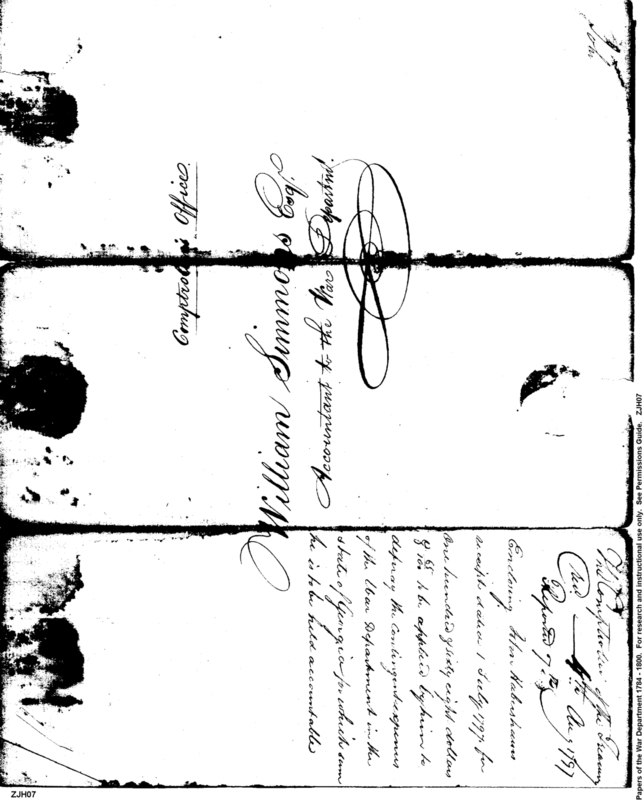 Comptroller's Office
William Simmons Esqr.
Accountant to the War Department.
The Comptroller of the Treasury
4th Aug 1797
Reported 7th
Enclosing John Habershams
receipt dated 1 July 1797. for
One hundred & sixty eight dollars
to be applied by him to
defraying the Contingent expenses
of the War Department in the
State of Georgia for which sum
he is to be held accountable
ZJH07
Papers of the War Department 1784 - 1800. For research and instructional use only. See Permissions Guide. ZJH07